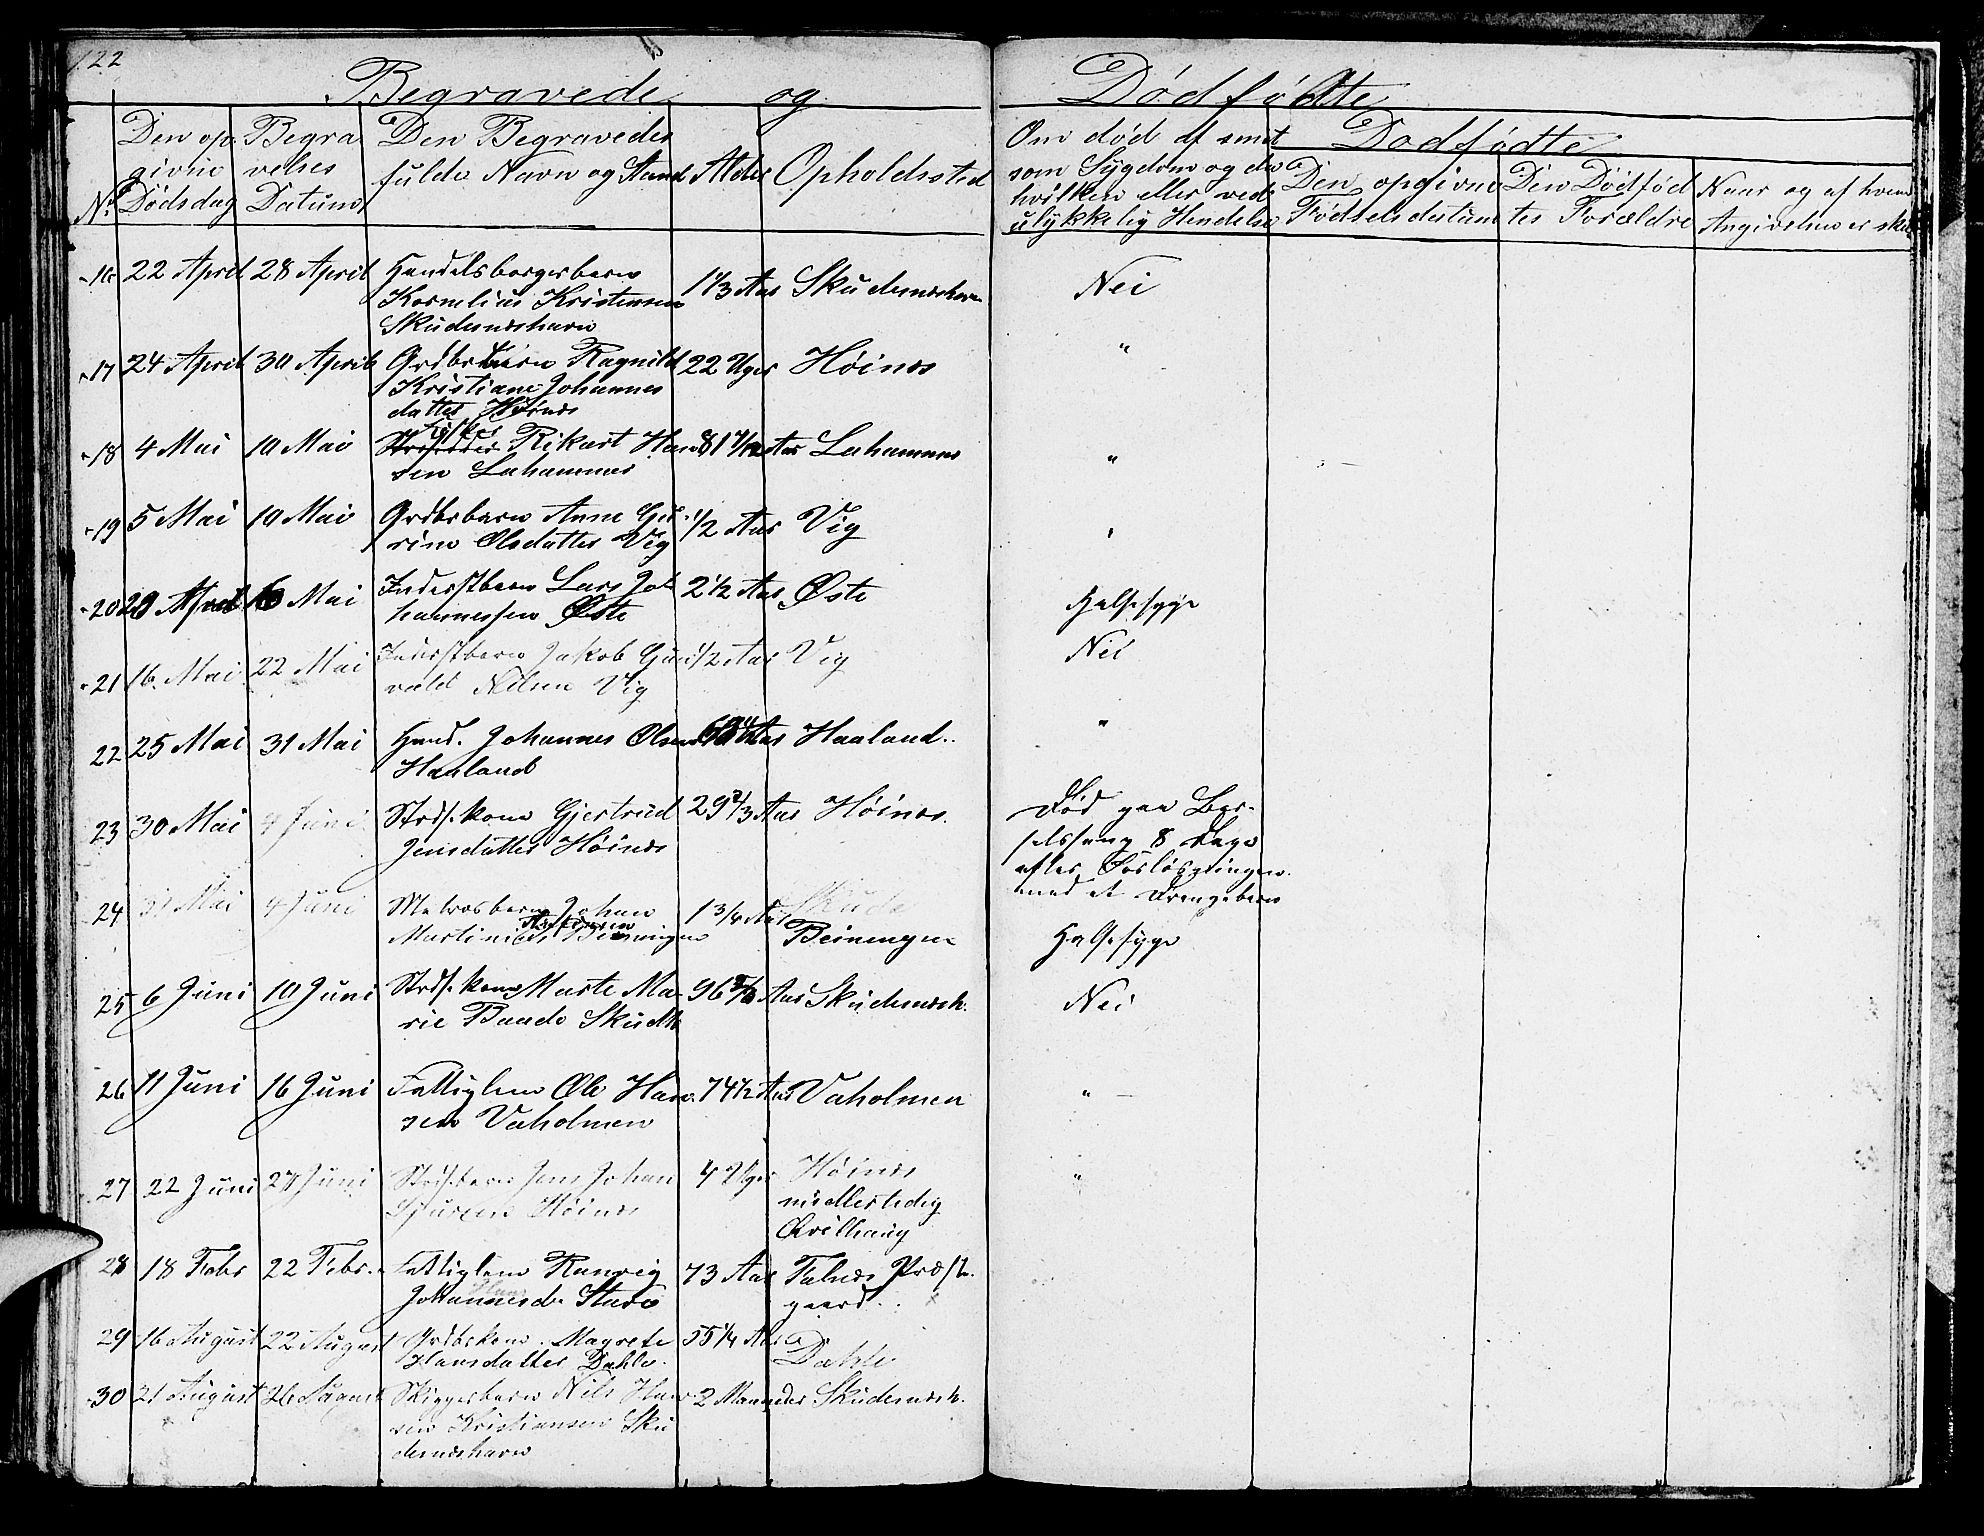 122
Begravede og Dødfødte
Den op- givne Dødsdag
Begra- velses Datum
Den Begravedes fulde Navn og Stand
Alder
Opholdssted
Om død af smit som Sygdom og da hvilken eller ved ulykkelig Hendelse
Dødfødte
Den opgivne Fødselsdatum
Den Dødfød tes Forældre
Naar og af hvem Angivelsen er
No
16 22 April 28 April Handelsborgerbarn 1 1/3 Aar Skudesneshavn Nei
Kornelius Kristensen
Skudesneshavn
17 24 April 30 April Grdbrbarn Ragnild 22 Uger Høines "
Kristiane Johannes
datter Høines
Fisker
18 4 Mai 10 Mai Rikart Han 81 Aar Lahammer "
sen Lahammer
19 5 Mai 10 Mai Grdbrbarn Anne Gu- 1/2 Aar Vig "
rine Olsdatter Vig
20 April Mai Inderstbarn Lars Jo 2 1/2 Aar Øste Halssyge
hannessen Øste
21 16. Mai 22 Mai Inderstbarn Jakob Gun 1/2 Aar Vig Nei
vald Nilsen Vig
22 25 Mai 31 Mai Johannes Olsen Aar Haaland "
Haaland
23 30 Mai 4 Juni Strds.kone Gjertrud 29 2/3 Aar Høines Død paa Bar-
Jensdatter Høines selsseng 8 Dage
efter Forløsningen
med et Drengebarn
24 31 Mai 4 Juni Matrosbarn Johan 1 3/4 Aar Skude
Martinius Beiningen Beiningen Halssyge
25 6 Juni 10 Juni Strds.kone Marte Ma- 96 Aar Skudesnesh. Nei
rie Baade
26 11 Juni 16 Juni Fattiglem Ole Han 74 1/2 Aar Vaholmen "
sen Vaholmen
27 22 Juni 27 Juni Strds.barn Jens Johan 4 Uger Høines "
Sjursen Høines midlertidig
Qvilhaug
28 18 Febr 22 Febr. Fattiglem Ranveig 73 Aar Falnes Præste-
Johannesd. Stave gaard.
29 16 August 22 August Grdbskone Magrete 55 1/4 Aar Dahle
Hansdatter Dahle.
30 21 August 26 August Skippersbarn Nils Han 2 Maaneder Skudesnesh.
sen Kristiansen Sku
desneshavn